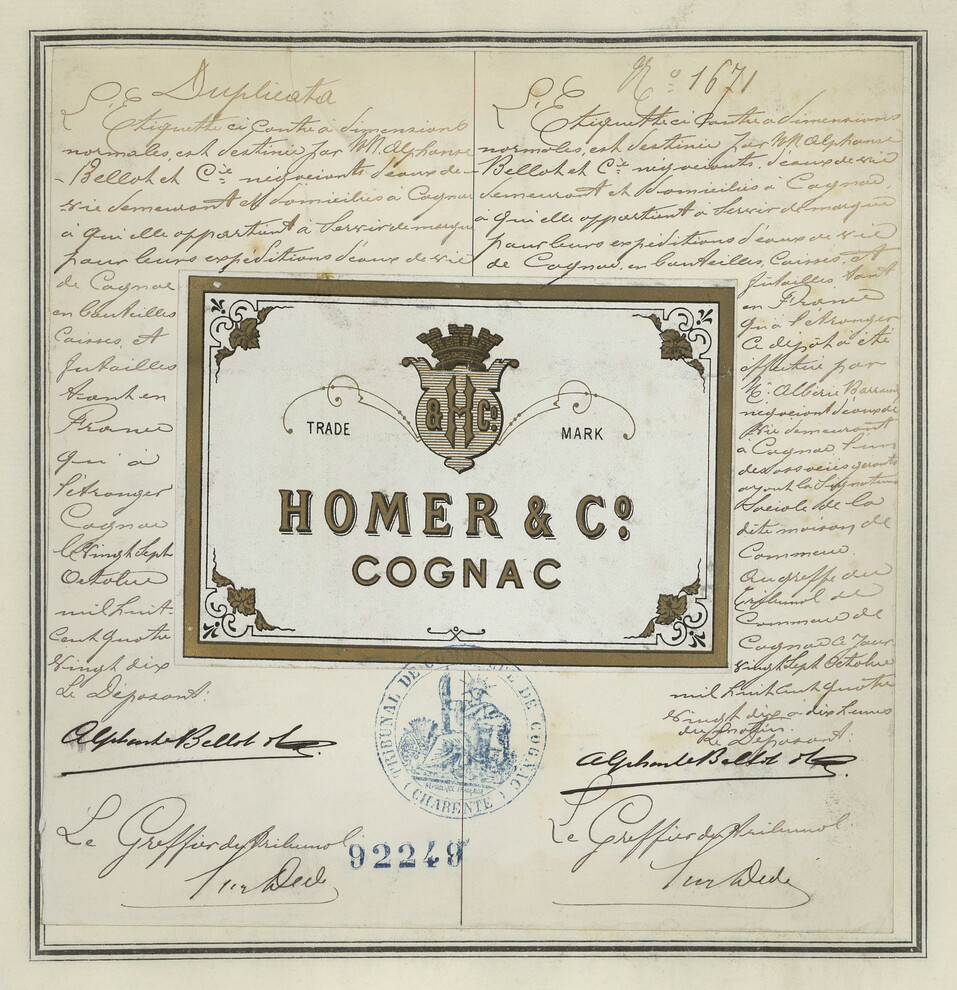 Duplicata
L'Etiquette ci contre a dimensions
normales, est destinée par MM. Alphonse
Bellot et Cie négociants d'eaux-de-
vie demeurant et domiciliés à Cognac
à qui elle appartient à servir de marque
pour leurs expéditions d'eaux de vie
de Cognac
en bouteilles
Caisses, et
futailles
tant en
France
qu'à
l'étranger
Cognac
le Vingt Sept
Octobre
mil huit-
cent quatre
vingt dix
Le Déposant:
Alphonse Bellot et Co
Le Greffier du Tribunal
No 1671
L'Etiquette ci Contre a dimensions
normales, est destinée par MM. Alphonse
Bellot et Cie négociants d'eaux de vie
demeurant et domiciliés à Cognac,
à qui elle appartient à servir de marque
pour leurs expéditions d'eaux de vie
de Cognac, en bouteilles, Caisses, et
futailles tant
en France
qu'à l'étranger
Ce dépôt a été
effectué par
Mr Albéric Barraud
négociant d'eaux de
vie demeurant
à Cognac l'un
des associés gérants
ayant la Signature
Sociale de la
dite maison de
Commerce.
Au greffe du
Tribunal de
Commerce de
Cognac ce Jour
vingt Sept Octobre
mil huit cent quatre
vingt dix à dix heures
du matin.
Le Déposant:
Alphonse Bellot et Co
Le Greffier du Tribunal.
& H Co.
TRADE MARK
HOMER & Co.
COGNAC
TRIBUNAL DE COMMERCE DE COGNAC
RÉPUBLIQUE FRANÇAISE
(CHARENTE)
92249